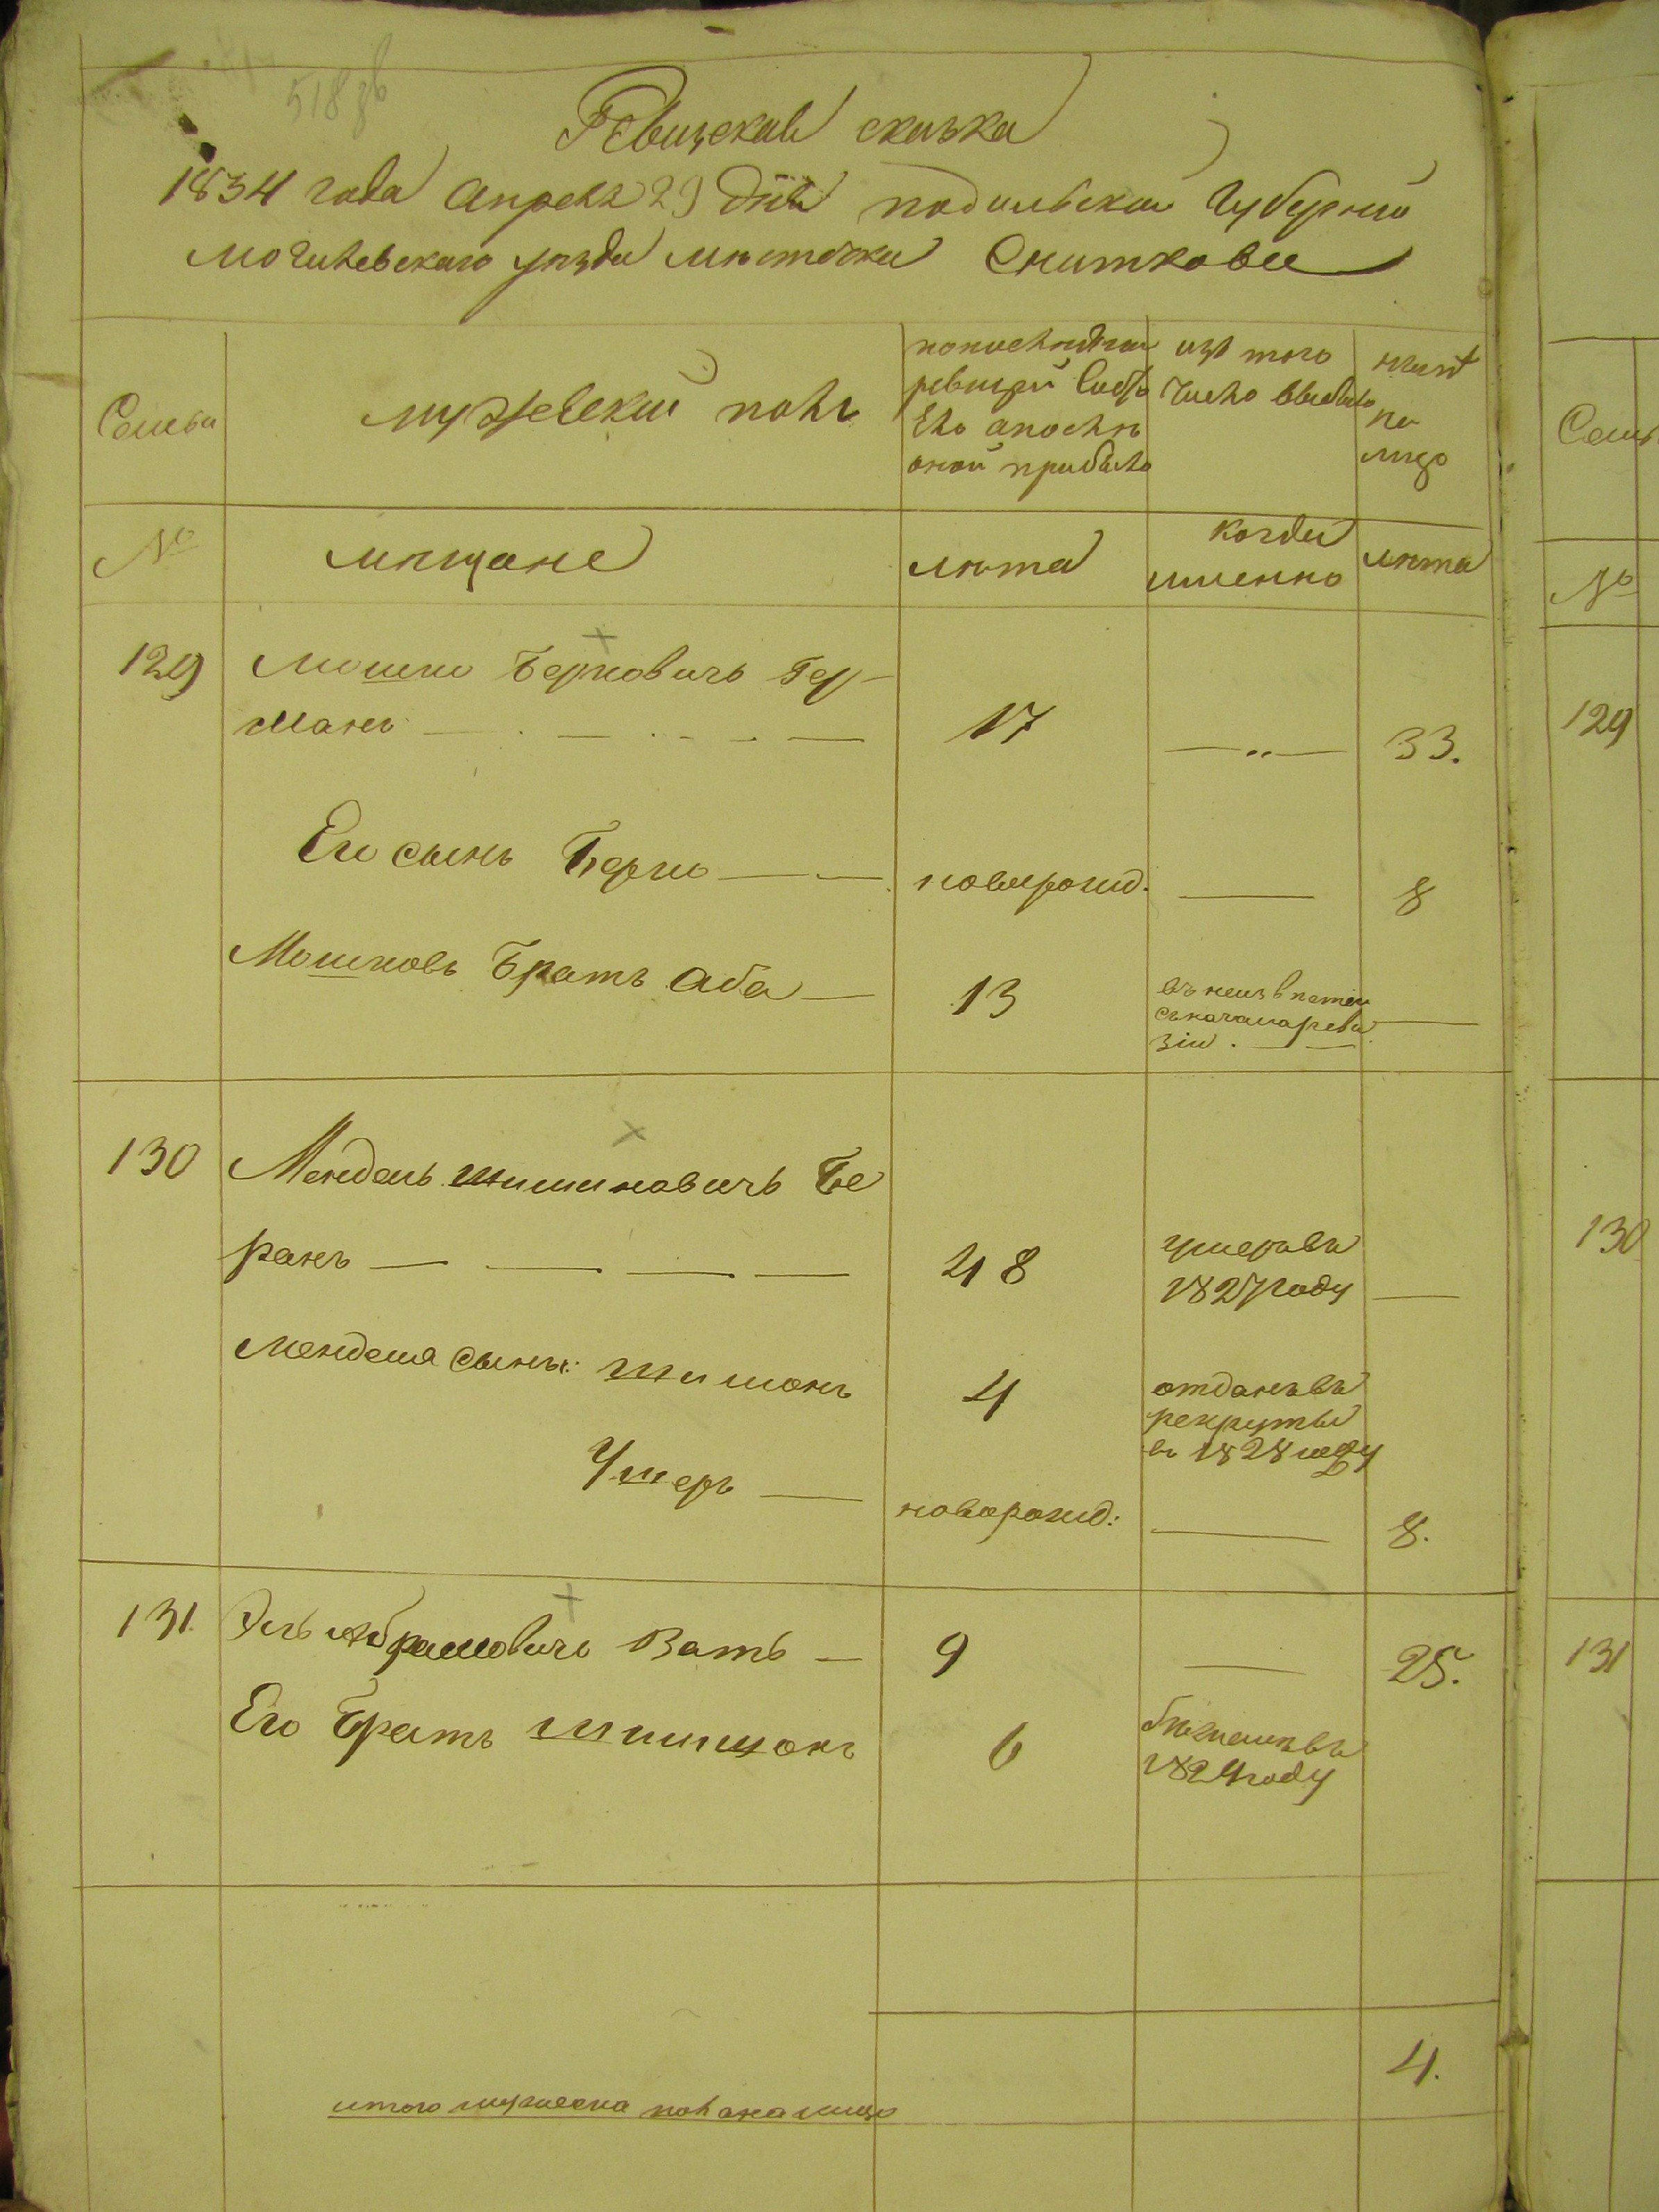 518 зв
Ревизская сказка
1834 года апреля 29 дня подольской губернии
могилевского уезда местечка Сниткова
Семья
мужеский полъ
по последней
ревизий состо
яло а после
оной прибыло
изъ того
число выбыло
ныне
на
лицо
Семь
№
мещане
лета
когда
именно
лета
№
129
Мошко Берковичъ Гер-
манъ
17
33.
129
Его сынъ Берко
новорожд.
8
Мошковъ Братъ Аба
13
въ неизвестн
съ начала реви
зіи.
130
Мендель Шимановичъ Бе
ранъ
48
умеръ въ
1827 году
130
Менделя сыны: Шимонъ
4
отданъ въ
рекруты
въ 1828 году
Ушеръ
новорожд:
8.
131.
Эль Абрамовичъ Ватъ
9
25.
131
Его Братъ Шимшонъ
6
бежалъ въ
1824 году
4.
итого мужеска пола на лицо